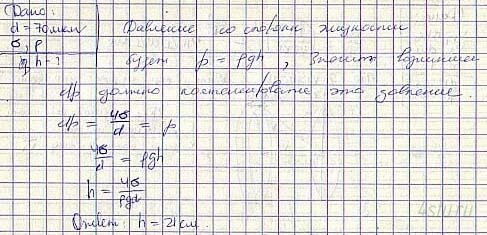 Дано:
d = 70 мкм
σ, ρ
h - ?
Давление со стороны жидкости
будет p = ρgh, Значит
Δp должно компенсировать это давление.
Δp = 4σ/d = p
4σ/d = ρgh
h = 4σ/ρgd
Ответ: h = 21 см.
4sni.ru